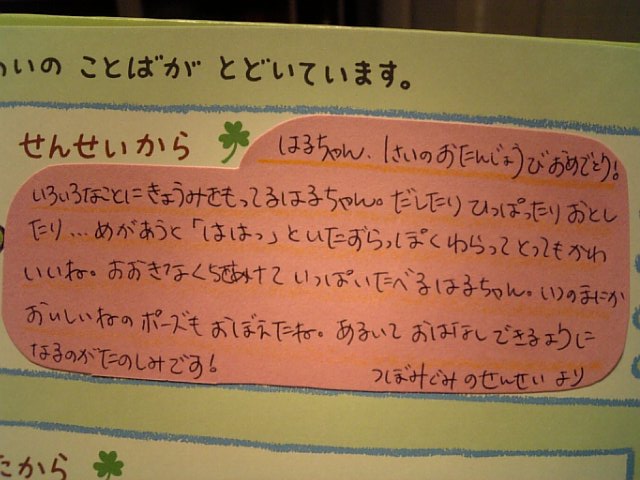 いの ことばが とどいています。
せんせいから
はるちゃん、1さいのおたんじょうびおめでとう!
いろいろなことにきょうみをもってるはるちゃん。だしたりひっぱったりおとし
たり…めがあうと「ははっ」といたずらっぽくわらってとってもかわ
いいね。おおきなくちをあけていっぱいたべるはるちゃん。いつのまにか
おいしいねのポーズもおぼえたね。あるいておはなしできるように
なるのがたのしみです!
つぼみぐみのせんせいより
たから